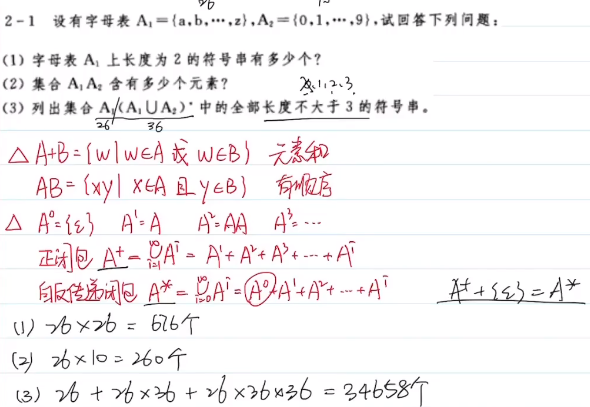 26
2-1 设有字母表 A₁={a,b,⋯,z},A₂={0,1,⋯,9},试回答下列问题:
(1) 字母表 A₁ 上长度为 2 的符号串有多少个?
(2) 集合 A₁A₂ 含有多少个元素?
1,2,3.
(3) 列出集合 A₁(A₁∪A₂)* 中的全部长度不大于 3 的符号串。
26 36
△ A+B={w|w∈A 或 w∈B} 元素和
AB={xy|x∈A 且 y∈B} 有顺序
△ A⁰={ε} A¹=A A²=AA A³=⋯
正闭包 A⁺=⋃_{i=1}^{∞}Aⁱ=A¹+A²+A³+⋯+Aⁱ
自反传递闭包 A*=⋃_{i=0}^{∞}Aⁱ=A⁰+A¹+A²+⋯+Aⁱ A⁺+{ε}=A*
(1) 26×26=676个
(2) 26×10=260个
(3) 26+26×36+26×36×36=34658个